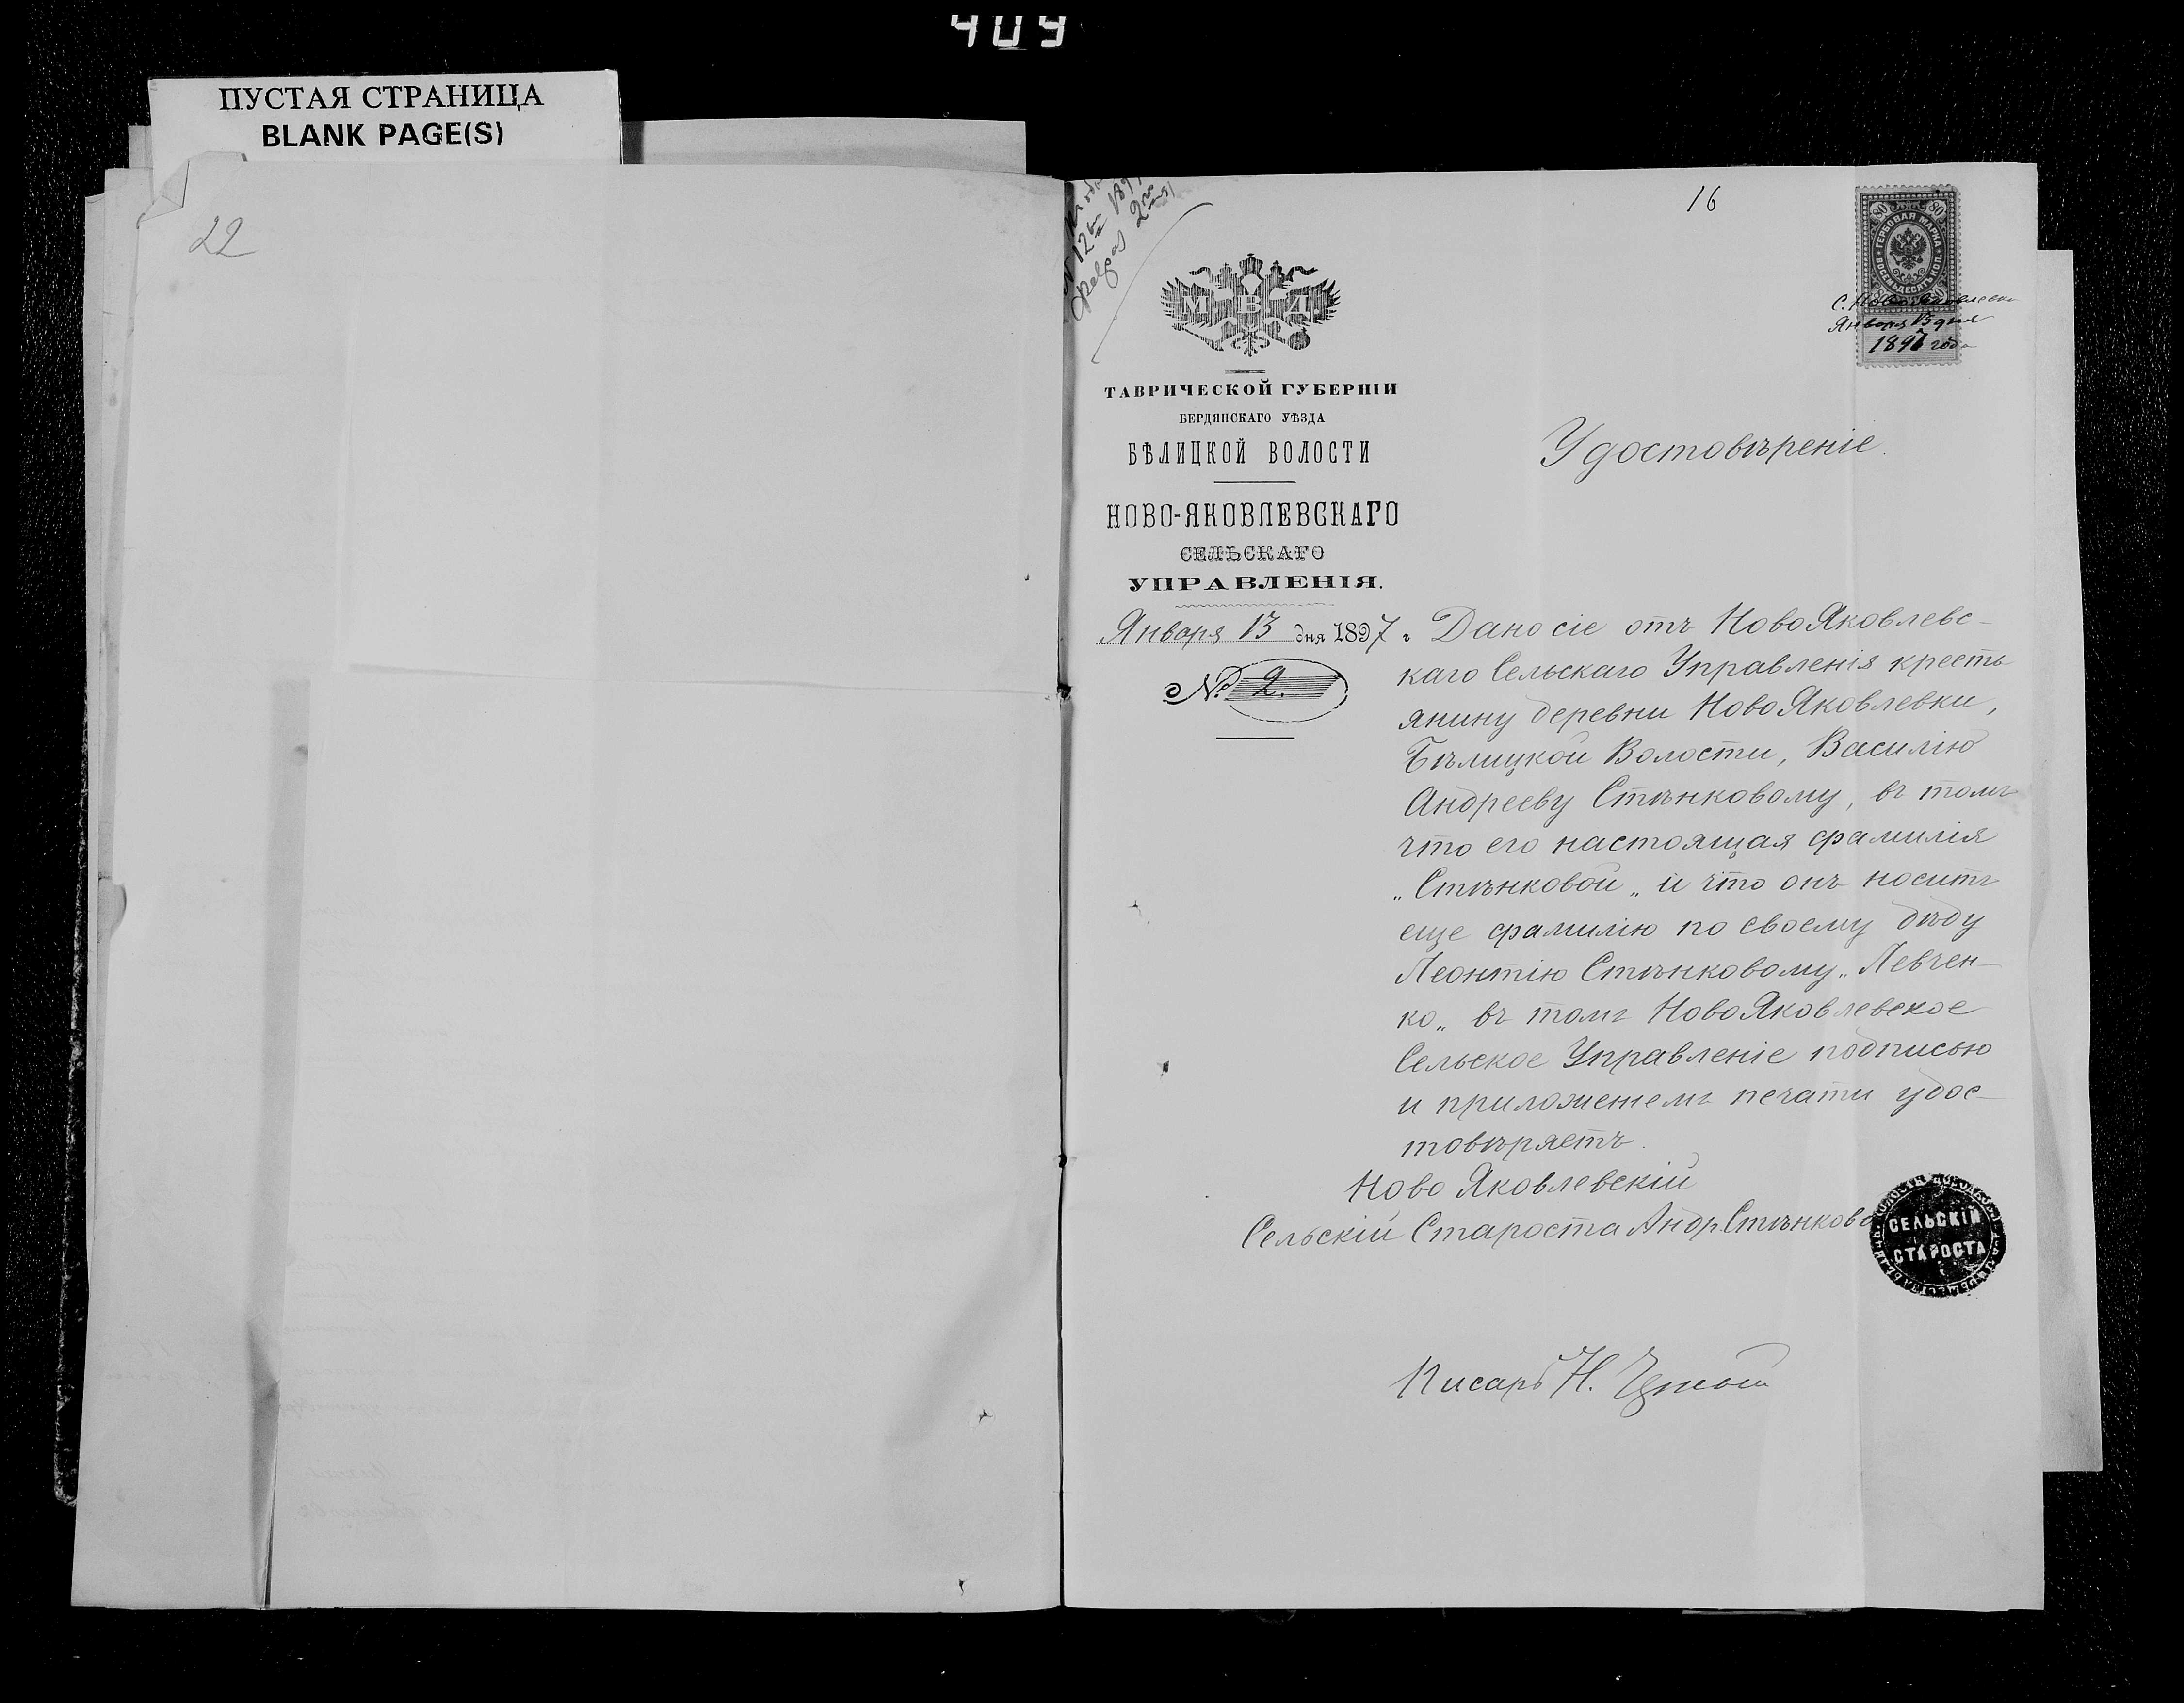 409
ПУСТАЯ СТРАНИЦА
BLANK PAGE(S)
22
16
80 80
ГЕРБОВАЯ МАРКА
С. Ново Яковлевка
Января 13 дня
1897 года
М В Д
ТАВРИЧЕСКОЙ ГУБЕРНІИ
БЕРДЯНСКАГО УѢЗДА
БѢЛИЦКОЙ ВОЛОСТИ
НОВО-ЯКОВЛЕВСКАГО
СЕЛЬСКАГО
УПРАВЛЕНІЯ.
Января 13 дня 1897 г.
№ 2.
Удостовѣреніе.
Дано сіе отъ НовоЯковлевс-
каго Сельскаго Управленія кресть
янину деревни НовоЯковлевки,
Бѣлицкой Волости, Василію
Андрееву Стѣнковому, въ томъ
что его настоящая фамилія
„Стѣнковой„ и что онъ носитъ
еще фамилію по своему дѣду
Леонтію Стѣнковому „Левчен-
ко„ въ томъ НовоЯковлевское
Сельское Управленіе подписью
и приложеніемъ печати удос-
товѣряетъ.
Ново Яковлевскій
Сельскій Староста Андр. Стѣнково
СЕЛЬСКІЙ
СТАРОСТА
Писарь Н.